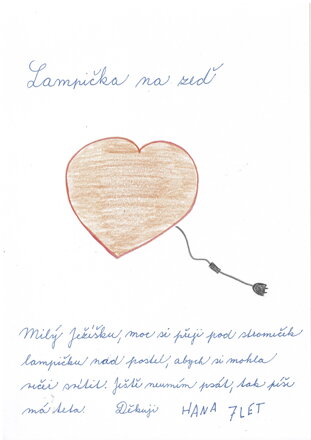 Lampička na zeď
Milý Ježíšku, moc si přeji pod stromeček
lampičku nad postel, abych si mohla
večer svítit. Ještě neumím psát, tak píše
má teta. Děkuji HANA 7LET